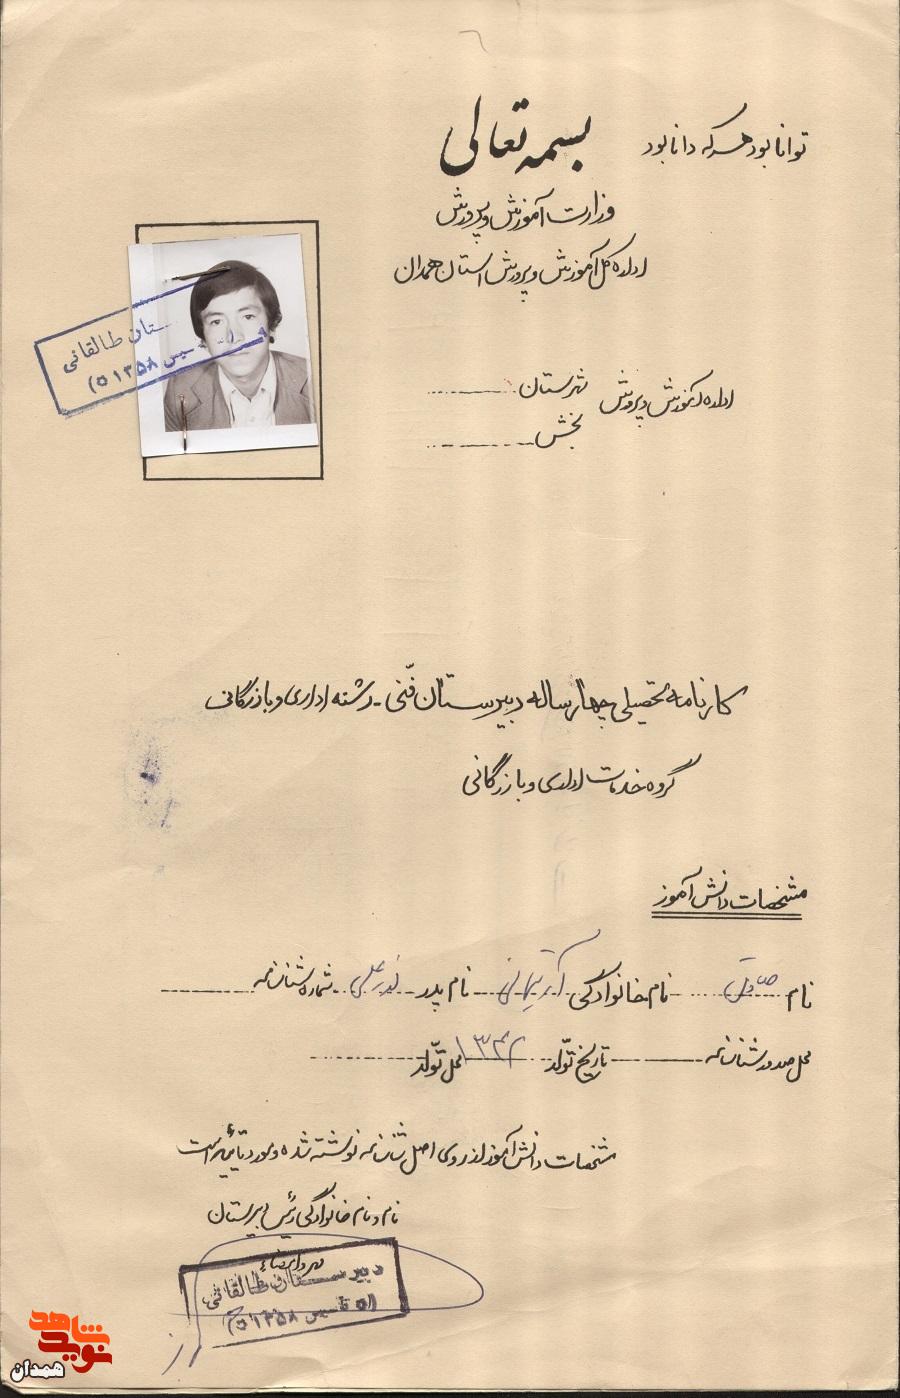 توانا بود هر که دانا بود
بسمه تعالی
وزارت آموزش و پرورش
اداره کل آموزش و پرورش استان همدان
اداره آموزش و پرورش شهرستان
بخش
ستان طالقانی
سیس ۱۳۵۸ ق)
کارنامه تحصیلی چهار ساله دبیرستان فنّی - رشته اداری و بازرگانی
گروه خدمات اداری و بازرگانی
مشخصات دانش آموز
نام صادق نام خانوادگی آرتیمانی نام پدر نذرعلی شماره شناسنامه
محل صدور شناسنامه تاریخ تولّد ۱۳۴۲ محل تولّد
مشخصات دانش آموز از روی اصل شناسنامه نوشته شده و مورد تأیید است
نام و نام خانوادگی رئیس دبیرستان
مهر و امضاء
دبیرستان طالقانی
تاسیس ۱۳۵۸ ق)
نوید شاهد
همدان